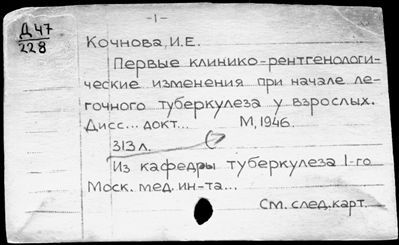 -1-
Д 47
228
Кочнова, И.Е.
Первые клинико-рентгенологи-
ческие изменения при начале ле-
гочного туберкулеза у взрослых.
Дисс... докт... М, 1946.
313 л.
Из кафедры туберкулеза 1-го
Моск. мед. ин-та...
См. след. карт.